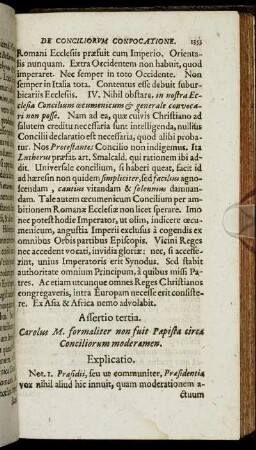 DE CONCILIORVM CONVOCATIONE.
Romani Ecclesiis præsuit cum Imperio. Orienta-
lis nunquam. Extra Occidentem non habuit, quod
imperaret. Nec semper in toto Occidente. Non
semper in Italia tota. Contentus esse debuit subur-
bicariis Ecclesiis. IV. Nihil obstare, in nostra Ec-
clesia Concilium œcumenicum & generale convoca-
ri non posse. Nam ad ea, quæ cuivis Christiano ad
salutem creditu necessaria sunt intelligenda, nullius
Concilii declaratio est necessaria, quod alibi proba-
tur. Nos Protestantes Concilio non indigemus. Ita
Lutherus præfat. art. Smalcald. qui rationem ibi ad-
dit. Universale concilium, si haberi queat, facit id
ad hæresin non quidem simpliciter, sed facilius agno-
scendam, cautius vitandam & solennius damnan-
dam. Tale autem œcumenicum Concilium per am-
bitionem Romanæ Ecclesiæ non licet sperare. Imo
nec potest hodie Imperator, ut olim, indicere œcu-
menicum, angustia Imperii exclusus à cogendis ex
omnibus Orbis partibus Episcopis. Vicini Reges
nec accedent vocati, invidia gloriæ: nec, si accesse-
rint, unius Imperatoris erit Synodus. Sed stabit
authoritate omnium Principum, à quibus missi Pa-
tres. Ac etiam utcunque omnes Reges Christianos
congregaveris, intra Europam necesse erit consiste-
re. Ex Asia & Africa nemo advolabit.
Assertio tertia.
Carolus M. formaliter non fuit Papista circa
Conciliorum moderamen.
Explicatio.
Not. 1. Præsidii, seu ut communiter, Præsidentiæ
vox nihil aliud hic innuit, quam moderationem a-
ctuum